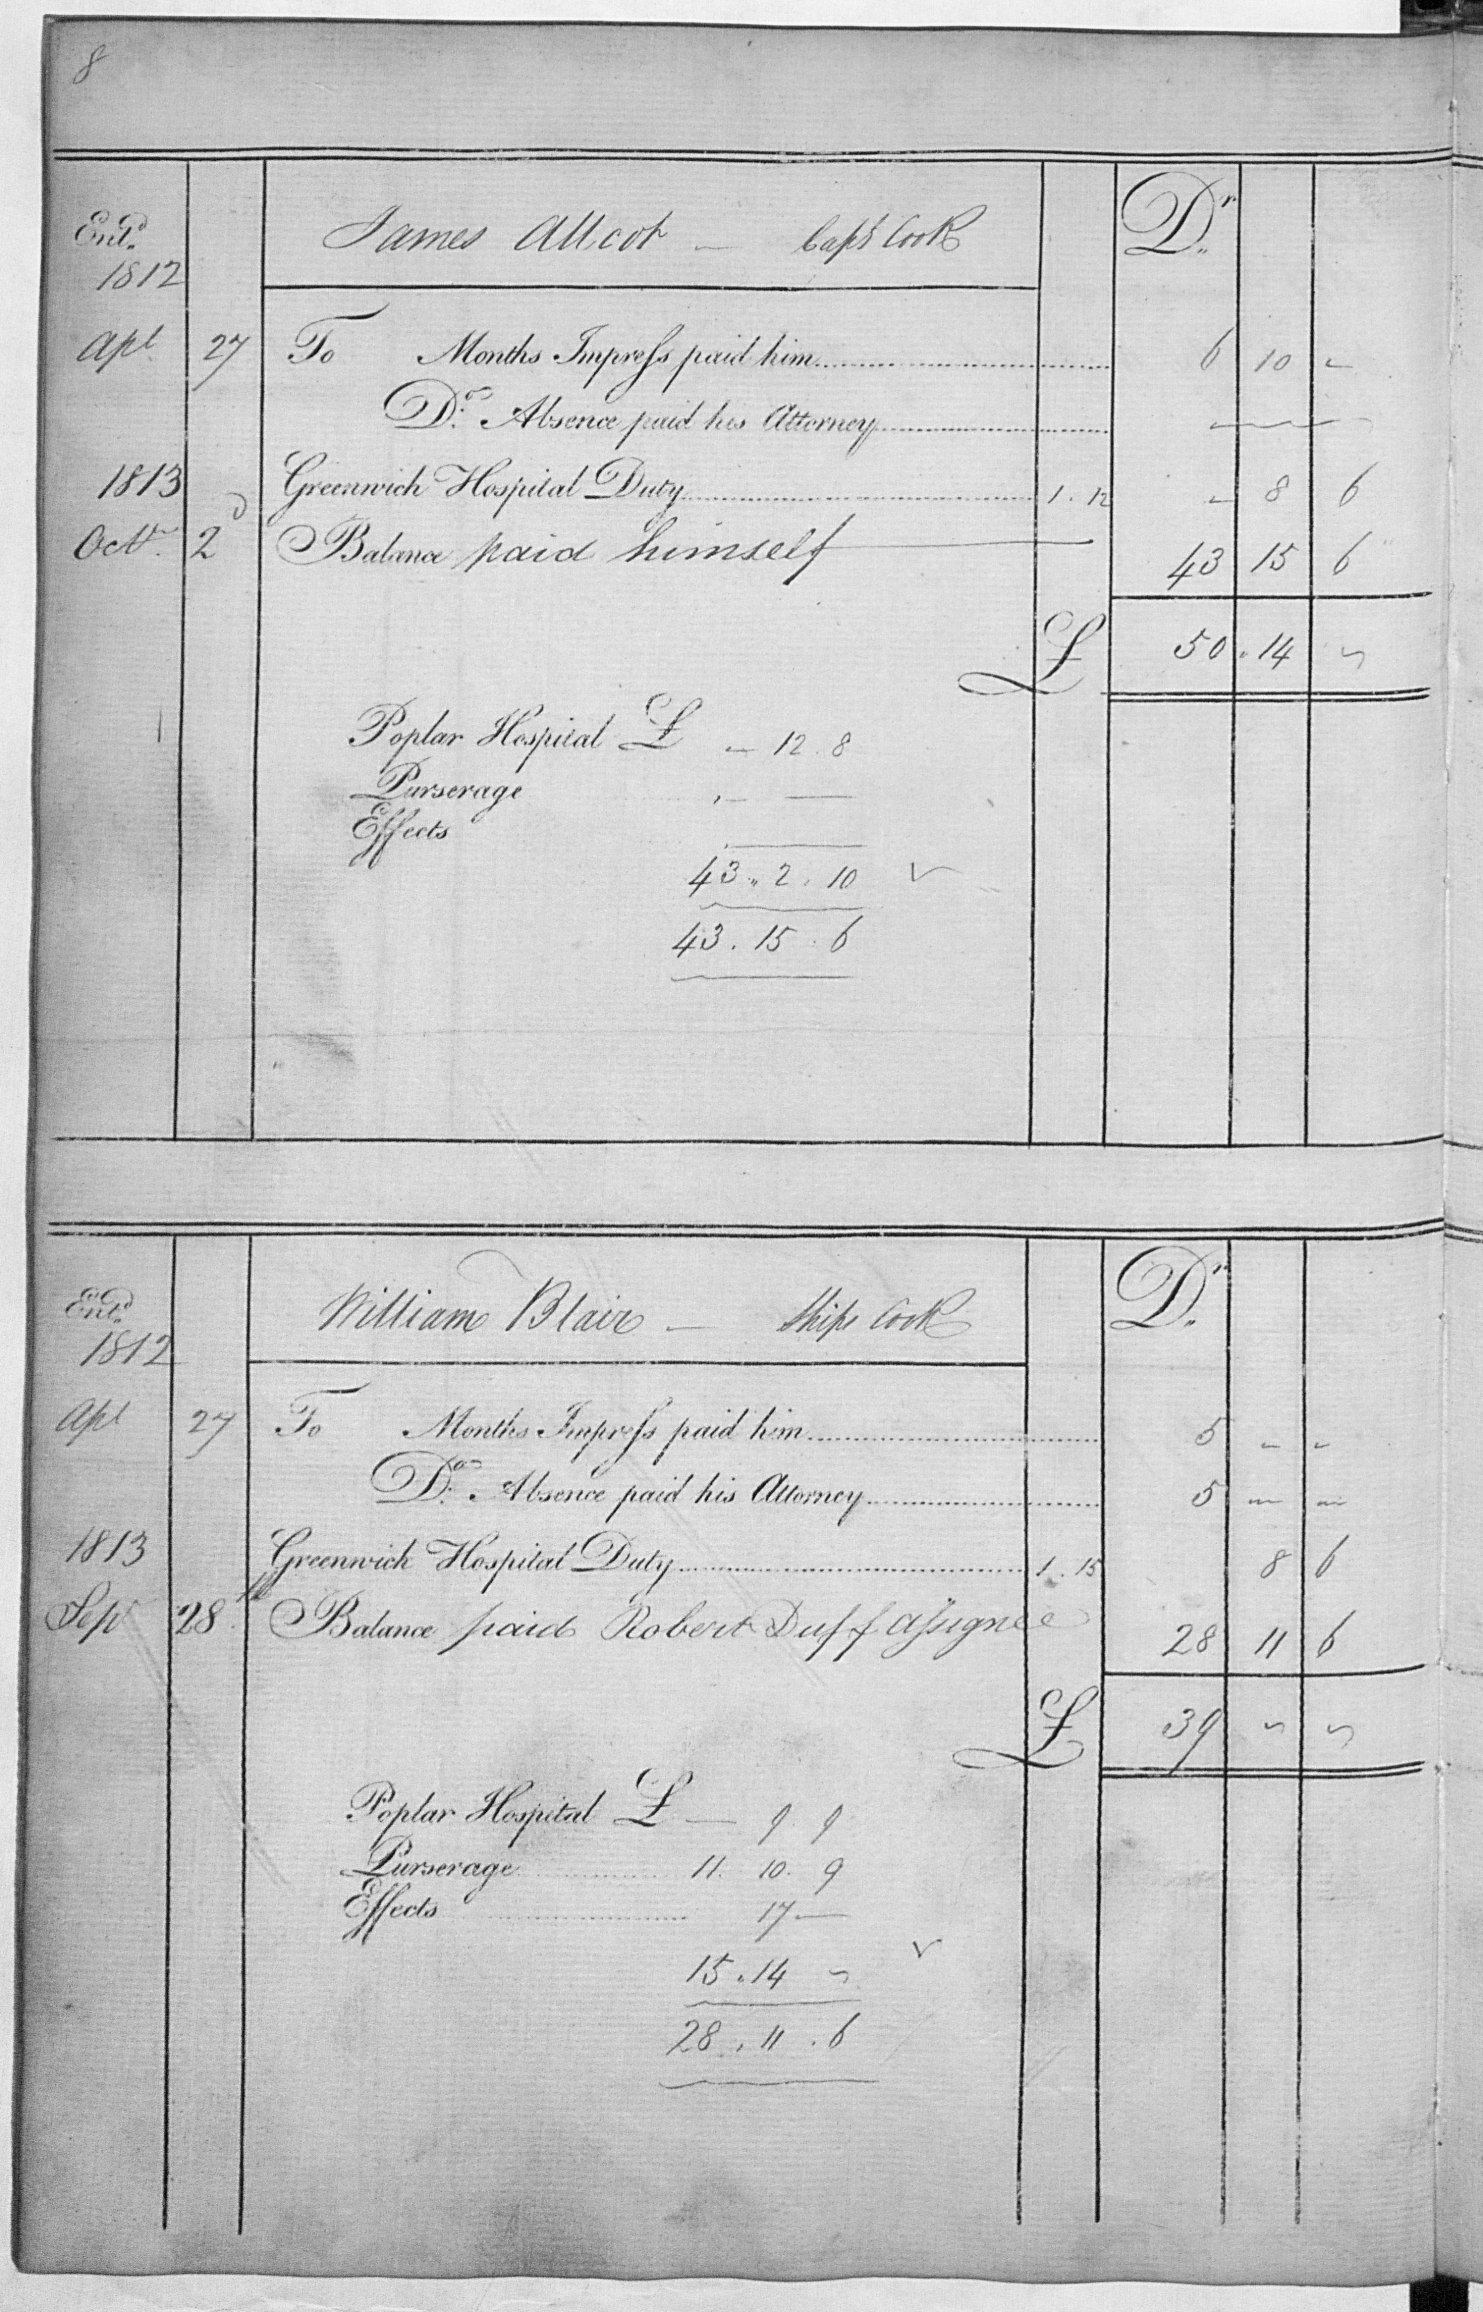 8
Entd. James Allcot — Capts Cook Dr.
1812
Apl 27 To Months Impress paid him 6 10 -
Do. Absence paid his Attorney — — —
1813 Greenwich Hospital Duty 1.12 - 8 6
Octr. 2d Balance paid himself 43 15 6
£ 50 . 14 -
Poplar Hospital £ — 12 . 8
Purserage - —
Effects
43 .. 2 . 10
43 . 15 . 6
Entd. William Blair — Ships Cook Dr.
1812
Apl 27 To Months Impress paid him 5 - -
Do. Absence paid his Attorney 5 - -
1813 Greenwich Hospital Duty 1.15 8 6
Sepr 28th Balance paid Robert Duff Assignee 28 11 6
£ 39 - -
Poplar Hospital £ — 9 . 9
Purserage 11. 10. 9
Effects 17 —
15 . 14 -
28 . 11 . 6